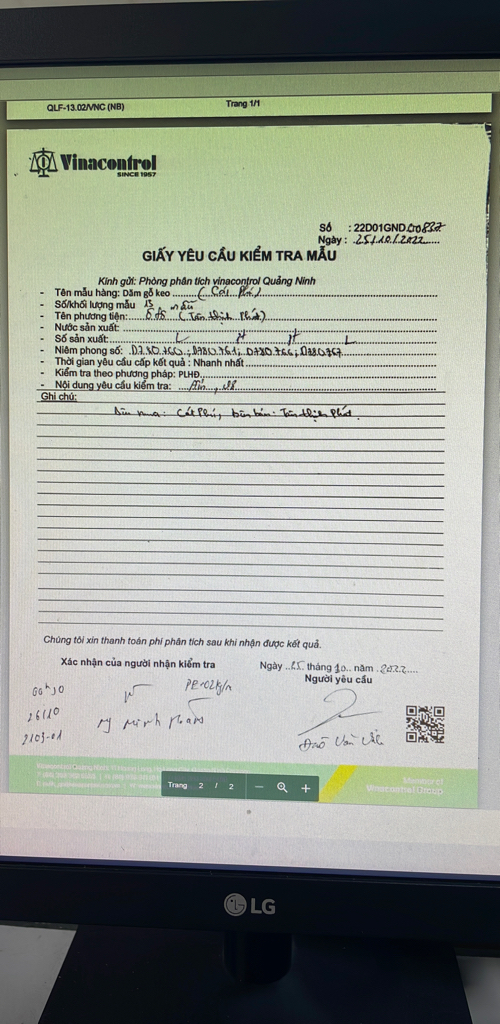 QLF-13.02/VNC (NB)
Trang 1/1
Vinacontrol
SINCE 1957
Số : 22D01GND00837
Ngày : 25/10/2022
GIẤY YÊU CẦU KIỂM TRA MẪU
Kính gửi: Phòng phân tích vinacontrol Quảng Ninh
- Tên mẫu hàng: Dăm gỗ keo (Cát Phú)
- Số/khối lượng mẫu
- Tên phương tiện: (Tân Thịnh Phát)
- Nước sản xuất:
- Số sản xuất:
- Niêm phong số: 0780760; 0780761; 0780766; 0780767
- Thời gian yêu cầu cấp kết quả : Nhanh nhất
- Kiểm tra theo phương pháp: PLHĐ
- Nội dung yêu cầu kiểm tra: Ẩm
Ghi chú:
Bên mua: Cát Phú, bên bán: Tân Thịnh Phát
Chúng tôi xin thanh toán phí phân tích sau khi nhận được kết quả.
Xác nhận của người nhận kiểm tra
Ngày 25 tháng 10 năm 2022
Người yêu cầu
26/10
2103-01
Minh
Đào Văn
Member of
Vinacontrol Group
Trang 2 / 2 — +
LG